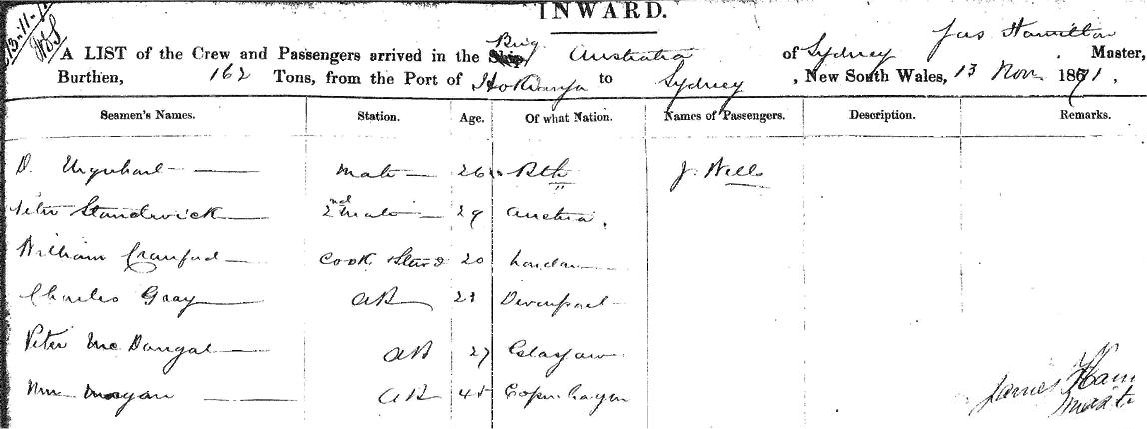 13-11-
INWARD.
A LIST of the Crew and Passengers arrived in the Ship Brig Australia of Sydney Jas Hamilton Master,
Burthen, 162 Tons, from the Port of Hokianga to Sydney, New South Wales, 13 Nov. 1871,
Seamen's Names. Station. Age. Of what Nation. Names of Passengers. Description. Remarks.
D. Urquhart mate 26 J. Wells
Peter 2nd mate 29 Austria.
William Cranford Cook Stewd 20 London
Charles Gray AB 23 Devonport
Peter McDougal AB 27 Glasgow
Wm Morgan AB 45 Copenhagen
James Ham
Master